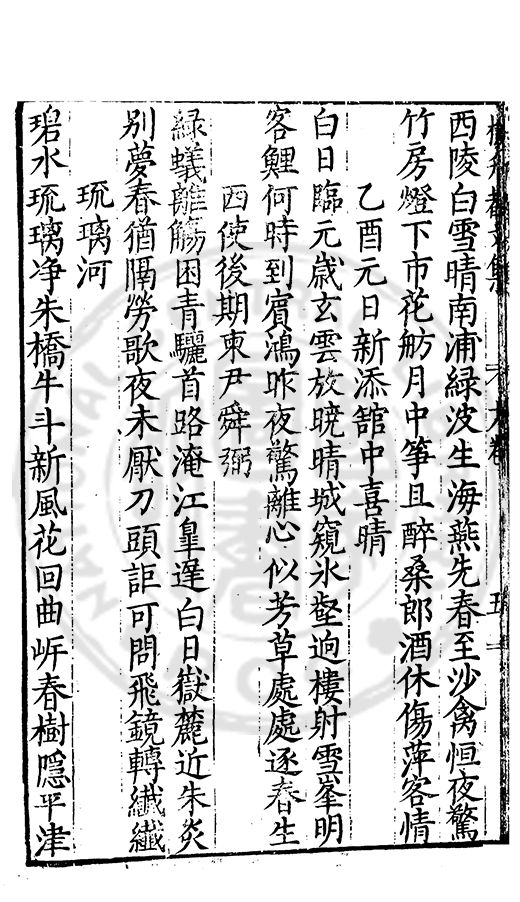 西陵白雪晴南浦緑波生海燕先春至沙禽恒夜驚
竹房燈下市花舫月中箏且醉桑郎酒休傷萍客情
乙酉元日新添舘中喜晴
白日臨元歲玄雲放曉晴城窺氷壑逈樓射雪峯明
客鯉何時到賓鴻昨夜驚離心似芳草處處逐春生
西使後期柬尹舜弼
緑蟻離觴困青驪首路淹江皐遅白日嶽麓近朱炎
别夢春猶隔勞歌夜未厭刀頭詎可問飛鏡轉纎纎
琉璃河
碧水琉璃净朱橋牛斗新風花回曲㟁春樹隱平津